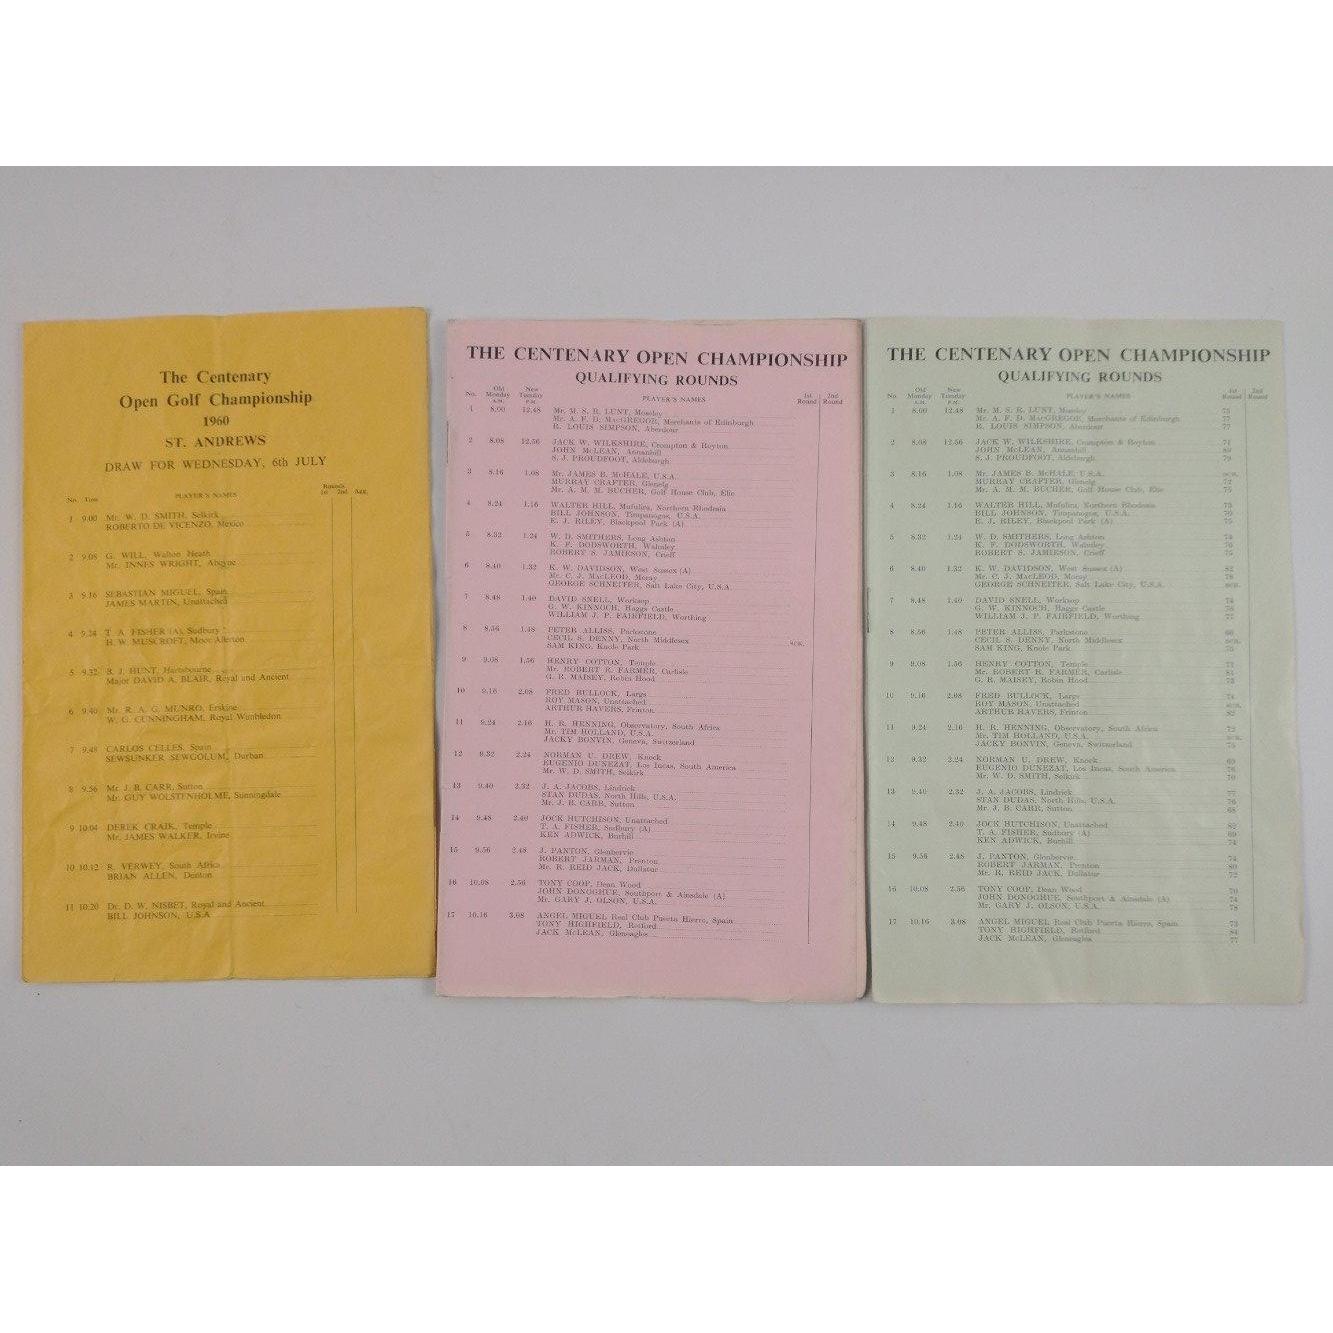 The Centenary
Open Golf Championship
1960
ST. ANDREWS
DRAW FOR WEDNESDAY, 6th JULY
Rounds
No. Time PLAYER'S NAMES 1st 2nd Agg.
1 9.00 Mr. W. D. SMITH, Selkirk
ROBERTO DE VICENZO, Mexico
2 9.08 G. WILL, Walton Heath
Mr. INNES WRIGHT, Aboyne
3 9.16 SEBASTIAN MIGUEL, Spain
JAMES MARTIN, Unattached
4 9.24 T. A. FISHER (A), Sudbury
H. W. MUSCROFT, Moor Allerton
5 9.32 R. J. HUNT, Hartsbourne
Major DAVID A. BLAIR, Royal and Ancient
6 9.40 Mr. R. A. G. MUNRO, Erskine
W. G. CUNNINGHAM, Royal Wimbledon
7 9.48 CARLOS CELLES, Spain
SEWSUNKER SEWGOLUM, Durban
8 9.56 Mr. J. B. CARR, Sutton
Mr. GUY WOLSTENHOLME, Sunningdale
9 10.04 DEREK CRAIK, Temple
Mr. JAMES WALKER, Irvine
10 10.12 R. VERWEY, South Africa
BRIAN ALLEN, Denton
11 10.20 Dr. D. W. NISBET, Royal and Ancient
BILL JOHNSON, U.S.A
THE CENTENARY OPEN CHAMPIONSHIP
QUALIFYING ROUNDS
Old New
No. Monday Tuesday PLAYER'S NAMES 1st 2nd
A.M. P.M. Round Round
1 8.00 12.48 Mr. M. S. R. LUNT, Moseley
Mr. A. F. D. MacGREGOR, Merchants of Edinburgh
R. LOUIS SIMPSON, Aberdour
2 8.08 12.56 JACK W. WILKSHIRE, Crompton & Royton
JOHN McLEAN, Annanhill
S. J. PROUDFOOT, Aldeburgh
3 8.16 1.08 Mr. JAMES B. McHALE, U.S.A.
MURRAY CRAFTER, Glenelg
Mr. A. M. M. BUCHER, Golf House Club, Elie
4 8.24 1.16 WALTER HILL, Mufulira, Northern Rhodesia
BILL JOHNSON, Timpanogos, U.S.A.
E. J. RILEY, Blackpool Park (A)
5 8.32 1.24 W. D. SMITHERS, Long Ashton
K. F. DODSWORTH, Walmley
ROBERT S. JAMIESON, Crieff
6 8.40 1.32 K. W. DAVIDSON, West Sussex (A)
Mr. C. J. MacLEOD, Moray
GEORGE SCHNEITER, Salt Lake City, U.S.A
7 8.48 1.40 DAVID SNELL, Worksop
G. W. KINNOCH, Haggs Castle
WILLIAM J. P. FAIRFIELD, Worthing
8 8.56 1.48 PETER ALLISS, Parkstone
CECIL S. DENNY, North Middlesex scr.
SAM KING, Knole Park
9 9.08 1.56 HENRY COTTON, Temple
Mr. ROBERT R. FARMER, Carlisle
G. R. MAISEY, Robin Hood
10 9.16 2.08 FRED BULLOCK, Largs
ROY MASON, Unattached
ARTHUR HAVERS, Frinton
11 9.24 2.16 H. R. HENNING, Observatory, South Africa
Mr. TIM HOLLAND, U.S.A.
JACKY BONVIN, Geneva, Switzerland
12 9.32 2.24 NORMAN U. DREW, Knock
EUGENIO DUNEZAT, Los Incas, South America
Mr. W. D. SMITH, Selkirk
13 9.40 2.32 J. A. JACOBS, Lindrick
STAN DUDAS, North Hills, U.S.A.
Mr. J. B. CARR, Sutton
14 9.48 2.40 JOCK HUTCHISON, Unattached
T. A. FISHER, Sudbury (A)
KEN ADWICK, Burhill
15 9.56 2.48 J. PANTON, Glenbervie
ROBERT JARMAN, Prenton
Mr. R. REID JACK, Dullatur
16 10.08 2.56 TONY COOP, Dean Wood
JOHN DONOGHUE, Southport & Ainsdale (A)
Mr. GARY J. OLSON, U.S.A.
17 10.16 3.08 ANGEL MIGUEL Real Club Puerta Hierro, Spain
TONY HIGHFIELD, Retford
JACK McLEAN, Gleneagles
THE CENTENARY OPEN CHAMPIONSHIP
QUALIFYING ROUNDS
Old New
No. Monday Tuesday PLAYER'S NAMES 1st 2nd
A.M. P.M. Round Round
1 8.00 12.48 Mr. M. S. R. LUNT, Moseley
Mr. A. F. D. MacGREGOR, Merchants of Edinburgh 77
R. LOUIS SIMPSON, Aberdour 77
2 8.08 12.56 JACK W. WILKSHIRE, Crompton & Royton 71
JOHN McLEAN, Annanhill
S. J. PROUDFOOT, Aldeburgh 79
3 8.16 1.08 Mr. JAMES B. McHALE, U.S.A. scr.
MURRAY CRAFTER, Glenelg 72
Mr. A. M. M. BUCHER, Golf House Club, Elie 75
4 8.24 1.16 WALTER HILL, Mufulira, Northern Rhodesia
BILL JOHNSON, Timpanogos, U.S.A. 70
E. J. RILEY, Blackpool Park (A) 75
5 8.32 1.24 W. D. SMITHERS, Long Ashton 74
K. F. DODSWORTH, Walmley 76
ROBERT S. JAMIESON, Crieff 75
6 8.40 1.32 K. W. DAVIDSON, West Sussex (A) 82
Mr. C. J. MacLEOD, Moray 78
GEORGE SCHNEITER, Salt Lake City, U.S.A. scr.
7 8.48 1.40 DAVID SNELL, Worksop 74
G. W. KINNOCH, Haggs Castle 76
WILLIAM J. P. FAIRFIELD, Worthing 77
8 8.56 1.48 PETER ALLISS, Parkstone 66
CECIL S. DENNY, North Middlesex scr.
SAM KING, Knole Park 75
9 9.08 1.56 HENRY COTTON, Temple 71
Mr. ROBERT R. FARMER, Carlisle 81
G. R. MAISEY, Robin Hood 73
10 9.16 2.08 FRED BULLOCK, Largs 74
ROY MASON, Unattached scr.
ARTHUR HAVERS, Frinton 82
11 9.24 2.16 H. R. HENNING, Observatory, South Africa 72
Mr. TIM HOLLAND, U.S.A. 77
JACKY BONVIN, Geneva, Switzerland 75
12 9.32 2.24 NORMAN U. DREW, Knock 69
EUGENIO DUNEZAT, Los Incas, South America 76
Mr. W. D. SMITH, Selkirk 70
13 9.40 2.32 J. A. JACOBS, Lindrick 77
STAN DUDAS, North Hills, U.S.A. 76
Mr. J. B. CARR, Sutton 68
14 9.48 2.40 JOCK HUTCHISON, Unattached 82
T. A. FISHER, Sudbury (A) 69
KEN ADWICK, Burhill 74
15 9.56 2.48 J. PANTON, Glenbervie 74
ROBERT JARMAN, Prenton 80
Mr. R. REID JACK, Dullatur 72
16 10.08 2.56 TONY COOP, Dean Wood 70
JOHN DONOGHUE, Southport & Ainsdale (A) 74
Mr. GARY J. OLSON, U.S.A. 78
17 10.16 3.08 ANGEL MIGUEL Real Club Puerta Hierro, Spain 73
TONY HIGHFIELD, Retford 84
JACK McLEAN, Gleneagles 77